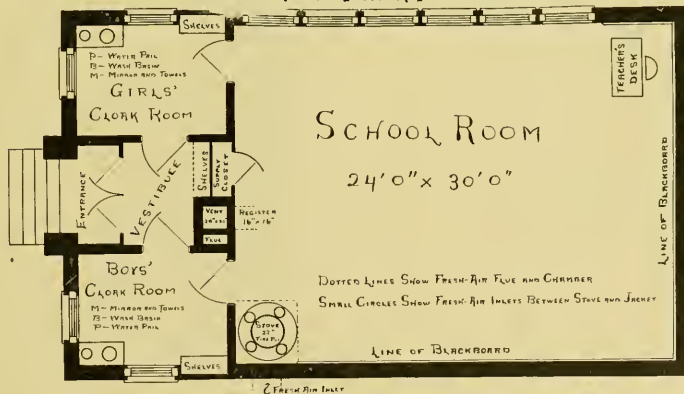 SHELVES
P - WATER PAIL
B - WASH BASIN
M - MIRROR AND TOWELS
GIRLS'
CLOAK ROOM
TEACHER'S
DESK
SCHOOL ROOM
24'0" X 30'0"
ENTRANCE
VESTIBULE
SHELVES
SUPPLY
CLOSET
VENT
REGISTER
16" X 16"
FLUE
LINE OF BLACKBOARD
BOYS'
CLOAK ROOM
M - MIRROR AND TOWELS
B - WASH BASIN
P - WATER PAIL
DOTTED LINES SHOW FRESH-AIR FLUE AND CHAMBER
SMALL CIRCLES SHOW FRESH-AIR INLETS BETWEEN STOVE AND JACKET
STOVE
22"
LINE OF BLACKBOARD
SHELVES
FRESH AIR INLET